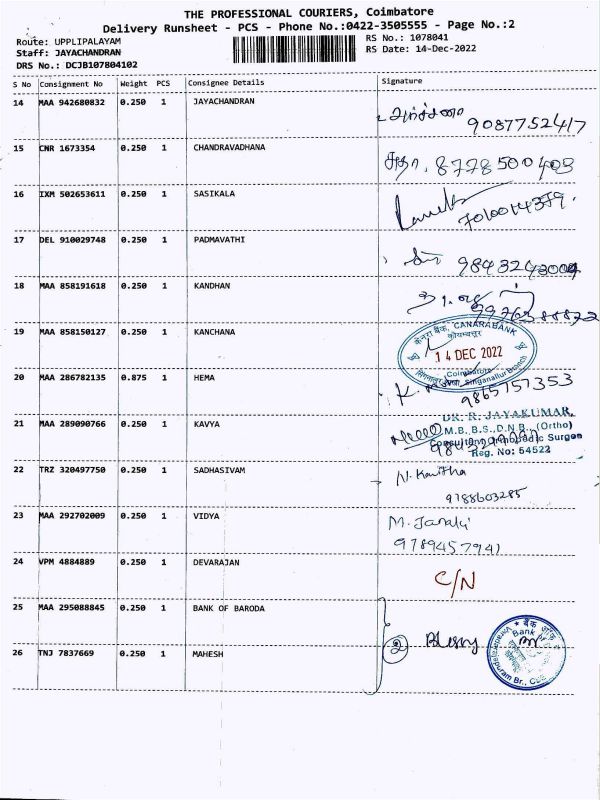 THE PROFESSIONAL COURIERS, Coimbatore
Delivery Runsheet - PCS - Phone No.:0422-3505555 - Page No.:2
Route: UPPLIPALAYAM
RS No.: 1078041
Staff: JAYACHANDRAN
RS Date: 14-Dec-2022
DRS No.: DCJB107804102
S No Consignment No Weight PCS Consignee Details Signature
14 MAA 942680832 0.250 1 JAYACHANDRAN
9087752417
15 CNR 1673354 0.250 1 CHANDRAVADHANA
8778500403
16 IXM 502653611 0.250 1 SASIKALA
17 DEL 910029748 0.250 1 PADMAVATHI
18 MAA 858191618 0.250 1 KANDHAN
19 MAA 858150127 0.250 1 KANCHANA
केनरा बैंक, CANARA BANK
कोयम्बत्तूर
14 DEC 2022
Coimbatore
Singanallur Branch
20 MAA 286782135 0.875 1 HEMA
9865757353
21 MAA 289090766 0.250 1 KAVYA
DR. R. JAYAKUMAR,
M.B.,B.S.,D.N.B., (Ortho)
Consultant Orthopaedic Surgeon
Reg. No: 54522
22 TRZ 320497750 0.250 1 SADHASIVAM
N. Kavitha
9788603285
23 MAA 292702009 0.250 1 VIDYA
M. Janaki
9789457941
24 VPM 4884889 0.250 1 DEVARAJAN
C/N
25 MAA 295088845 0.250 1 BANK OF BARODA
26 TNJ 7837669 0.250 1 MAHESH
2 Blessy